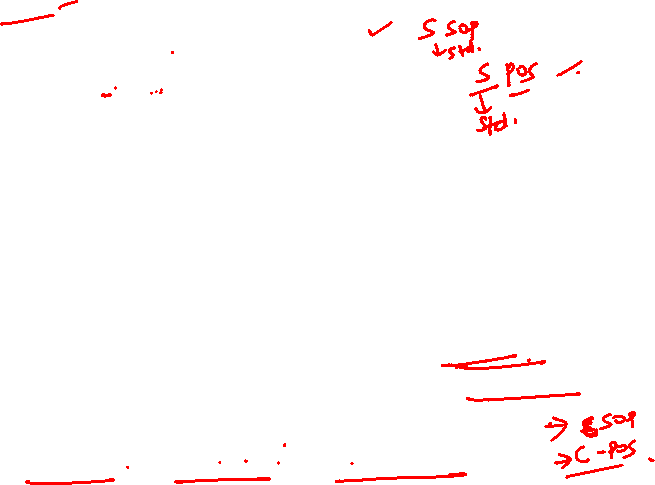 ✓ S SOP
↓ std.
S POS ✓
↓
std.
→ SOP
→ C-POS